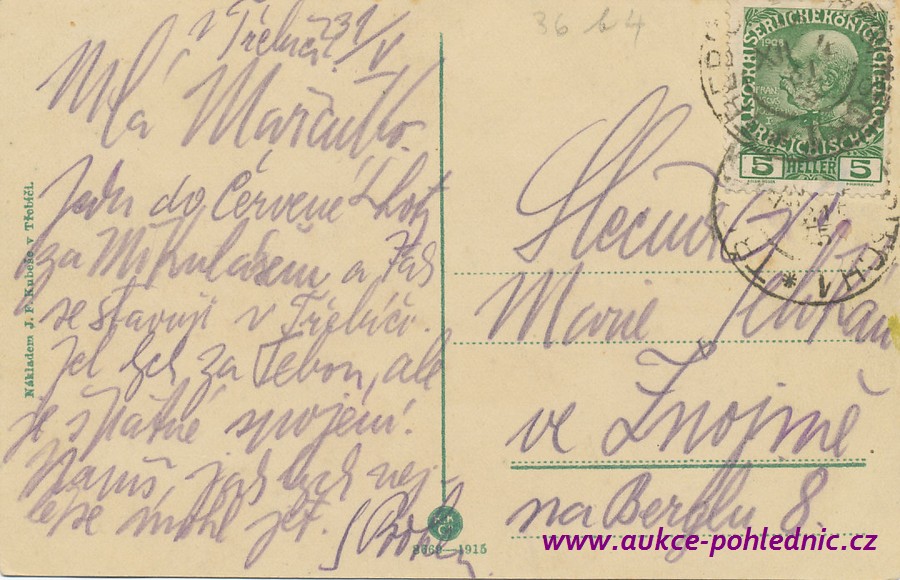 v Třebíči 31/V
Milá Mařenko.
Jedu do Červené Lhoty
za Mikulášem a tak
se stavuji v Třebíči.
Jel bych za Tebou, ale
je špatné spojení.
jak bych nej-
lépe mohl jet.
Nákladem J. F. Kubeše v Třebíči.
1915
36 b 4
KAISERLICHE KÖNIGLICHE
1908
5 HELLER 5
Slečna
Marie
ve Znojmě
na Berglu 8.
www.aukce-pohlednic.cz